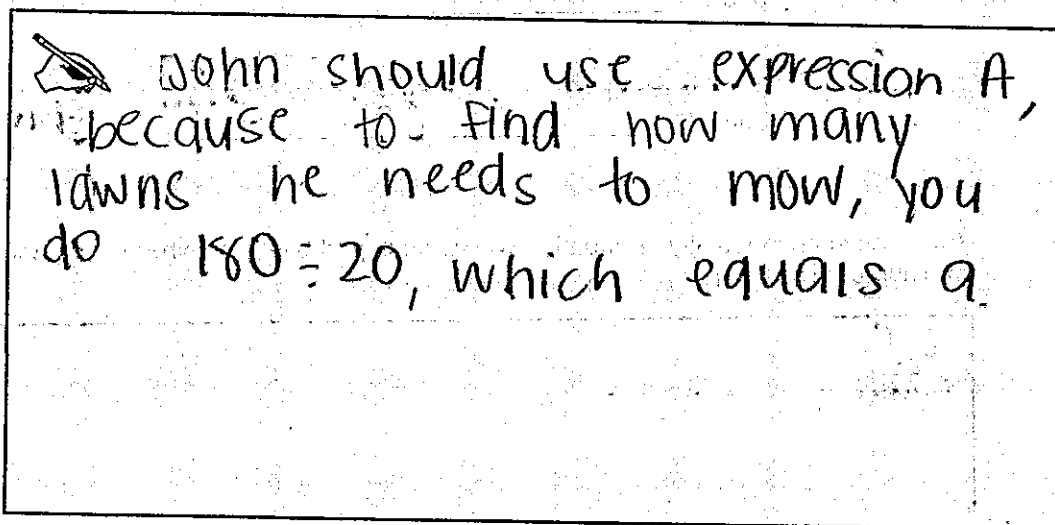 John should use expression A,
because to find how many
lawns he needs to mow, you
do 180 ÷ 20, which equals 9.